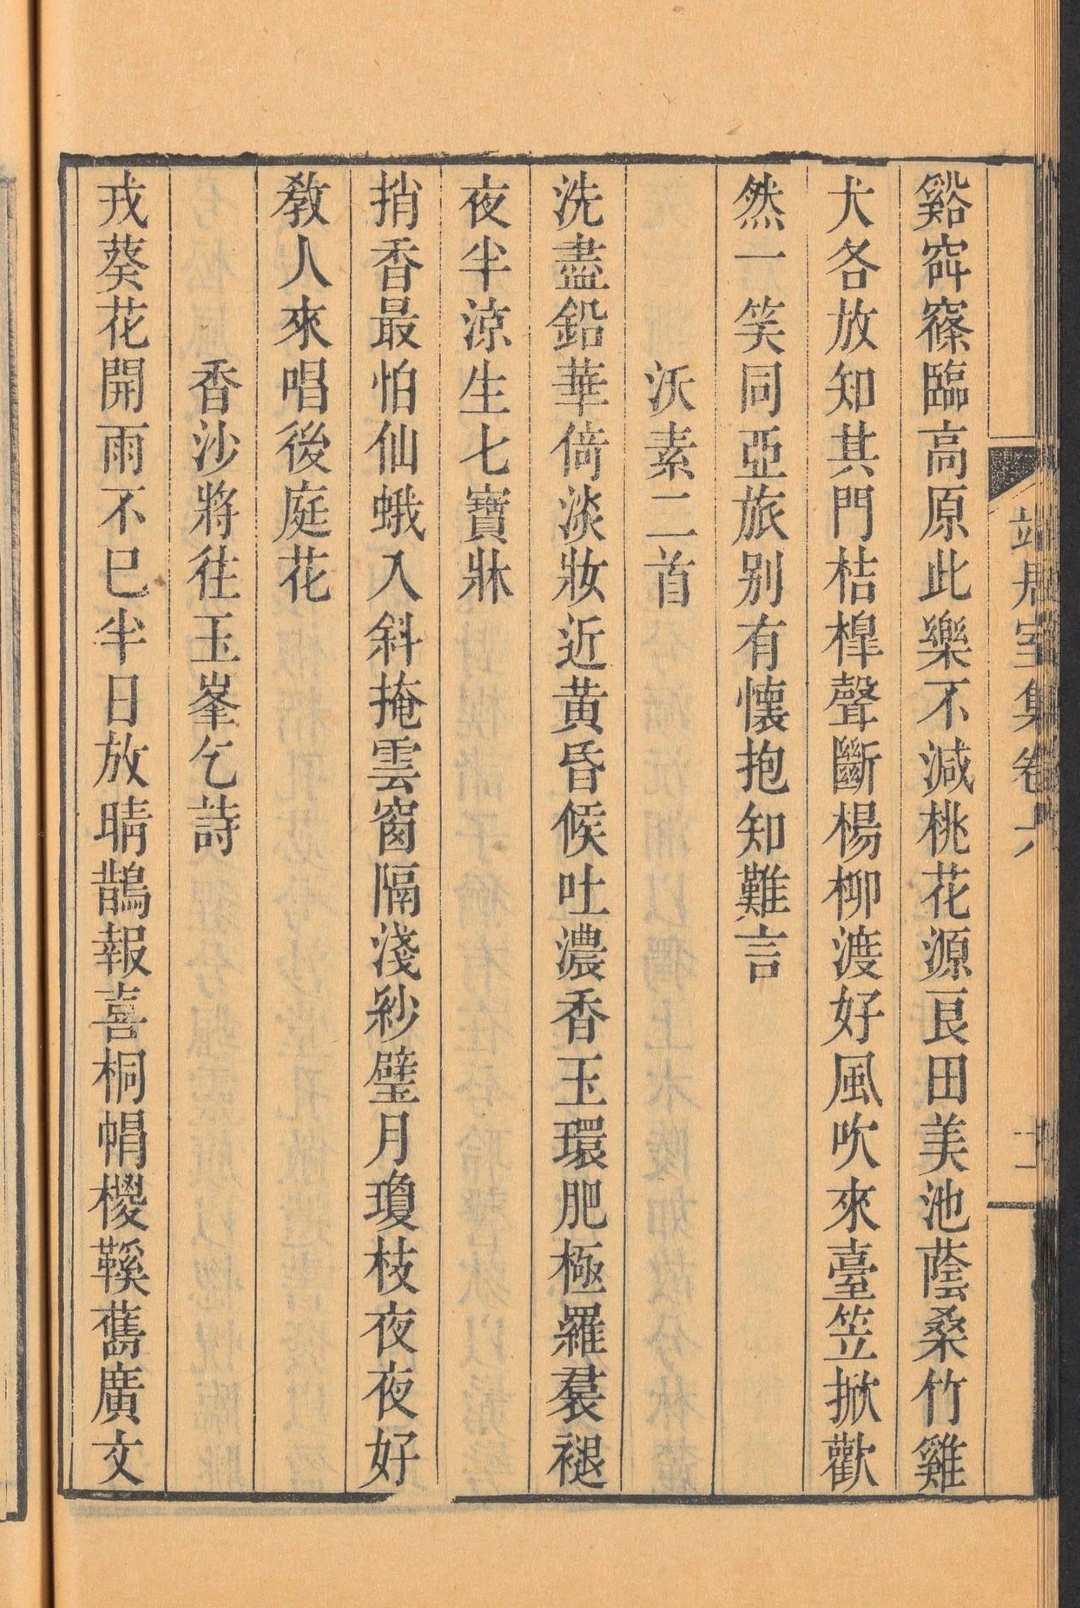 谿窂窱臨高原此樂不減桃花源良田美池蔭桑竹雞
犬各放知其門桔槹聲斷楊柳渡好風吹來臺笠掀歡
然一笑同亞旅別有懷抱知難言
沃素二首
洗盡鉛華倚淡妝近黃昏候吐濃香玉環肥極羅裠褪
夜半涼生七寶牀
捎香最怕仙蛾入斜掩雲窗隔淺紗璧月瓊枝夜夜好
敎人來唱後庭花
香沙將往玉峯乞詩
戎葵花開雨不巳半日放晴鵲報喜桐帽椶鞵舊廣文
居室集卷六